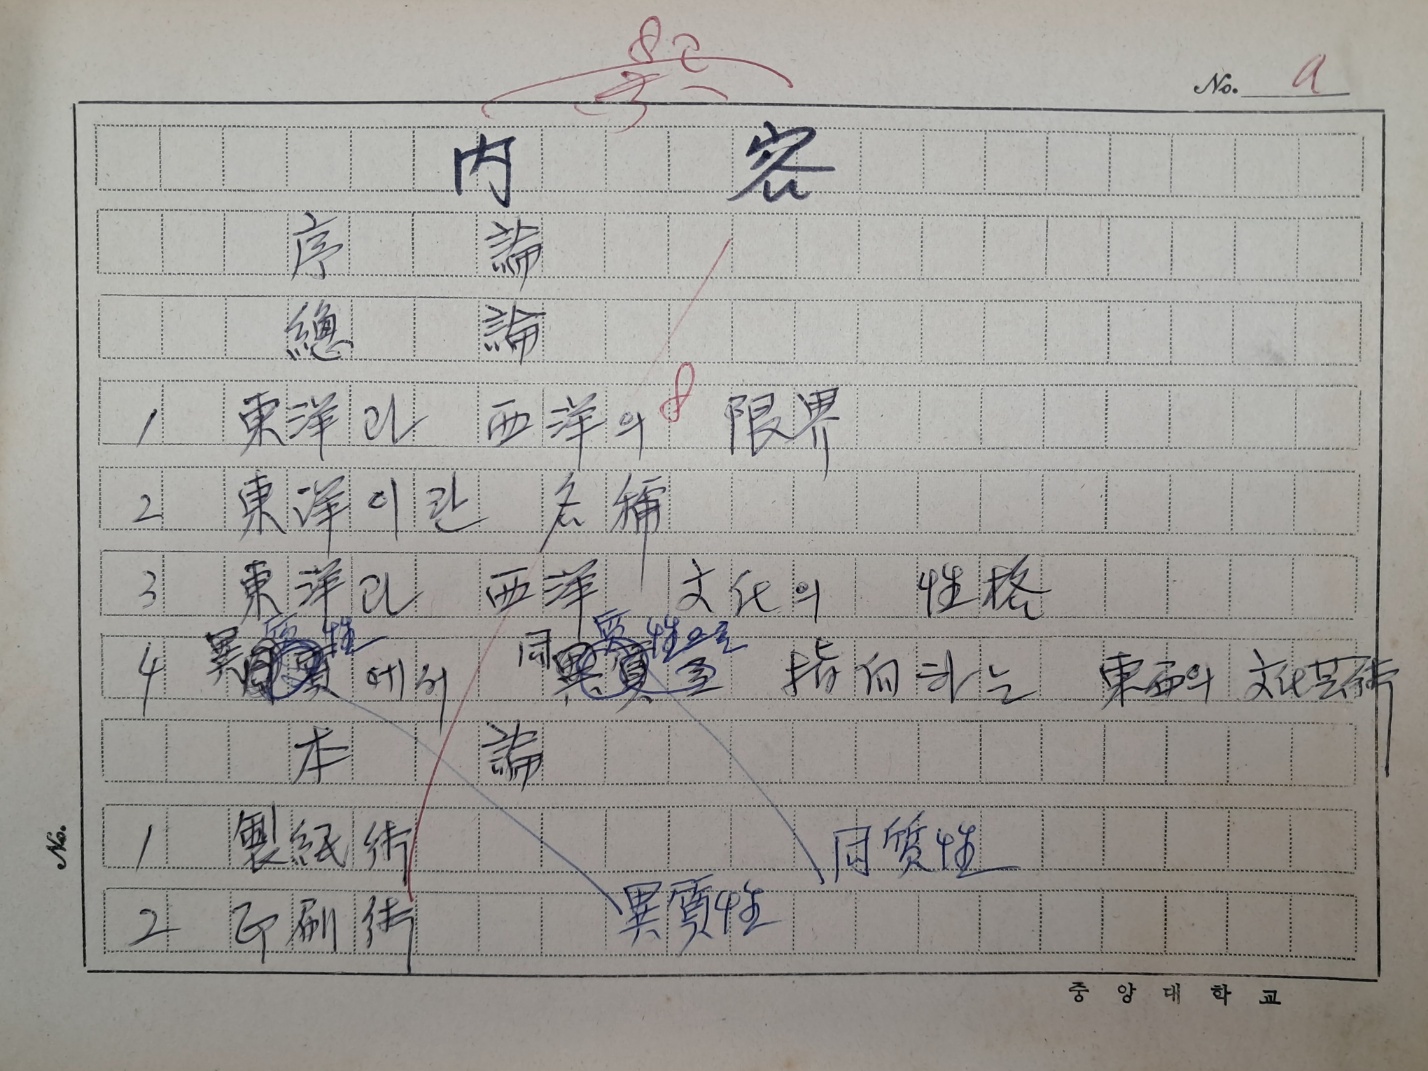 No. a
內 容
序 論
總 論
1 東洋과 西洋의 限界
2 東洋이란 名稱
3 東洋과 西洋 文化의 性格
4 異質性에서 同質性으로 指向하는 東西의 文化芸術
本 論
1 製紙術
同質性
2 印刷術
異質性
No.
중앙대학교